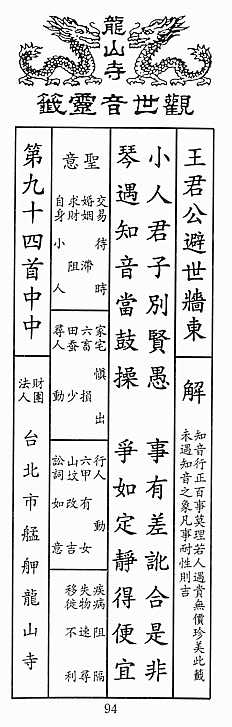 龍山寺
觀世音靈籤
王君公避世牆東
解
知音行正百事莫理若人遇賞無價珍美此籤
未遇知音之象凡事耐性則吉
小人君子別賢愚 事有差訛合是非
琴遇知音當鼓操 爭如定靜得便宜
聖意
交易 待時
婚姻 求財 阻滯
自身 小人
家宅 慎出
六畜 損
田蚕 少
尋人 動
行人 動
六甲 有女
山坟 改吉
訟詞 如意
疾病 阻隔
失物 速尋
移徙 不利
第九十四首中中
財團法人 台北市艋舺龍山寺
94